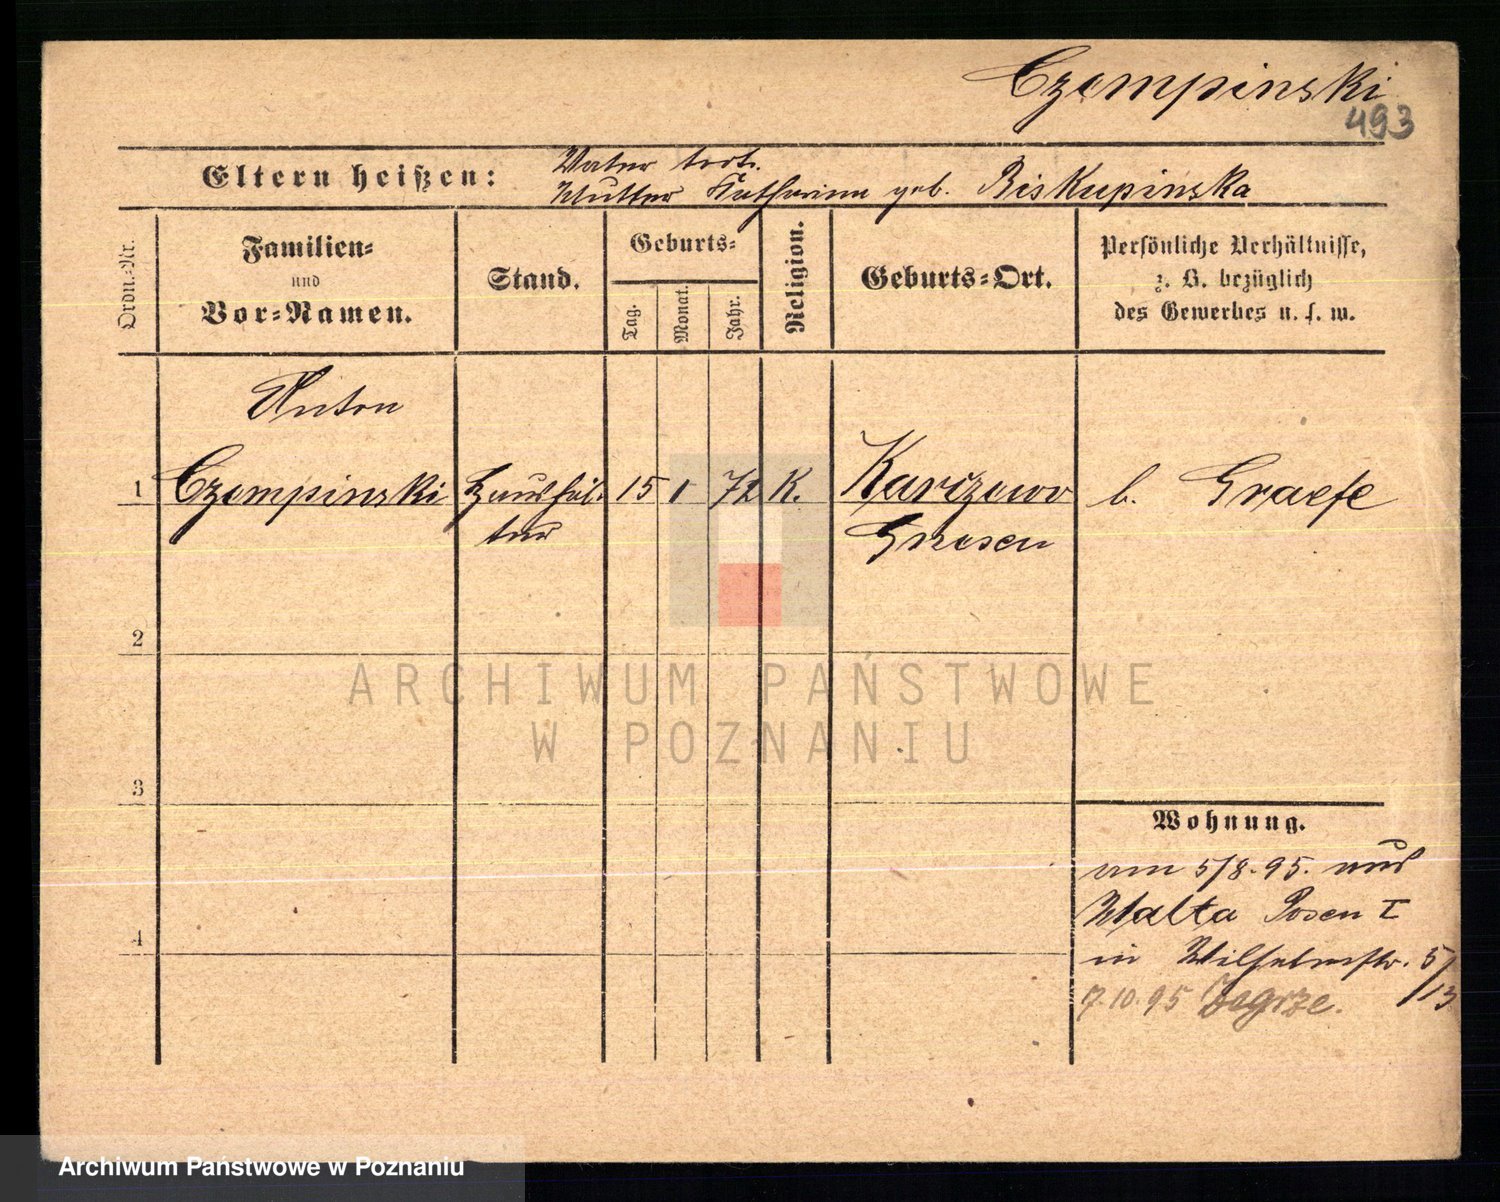 Czempinski
493
Eltern heißen:
Vater tot.
Mutter Katharina geb. Biskupinska
Ordn.-Nr.
Familien-
und
Vor-Namen.
Stand.
Geburts-
Tag.
Monat.
Jahr.
Religion.
Geburts-Ort.
Persönliche Verhältnisse,
z. B. bezüglich
des Gewerbes u. s. w.
Anton
1 Czempinski Haushäl- 15 1 72 K. Karczewo b. Graefe
ter Gnesen
2
3
4
Wohnung.
am 5/8.95. aus
Malta Posen I
in Wilhelmstr. 5/13
7.10.95 Zegrze.
ARCHIWUM PAŃSTWOWE
W POZNANIU
Archiwum Państwowe w Poznaniu